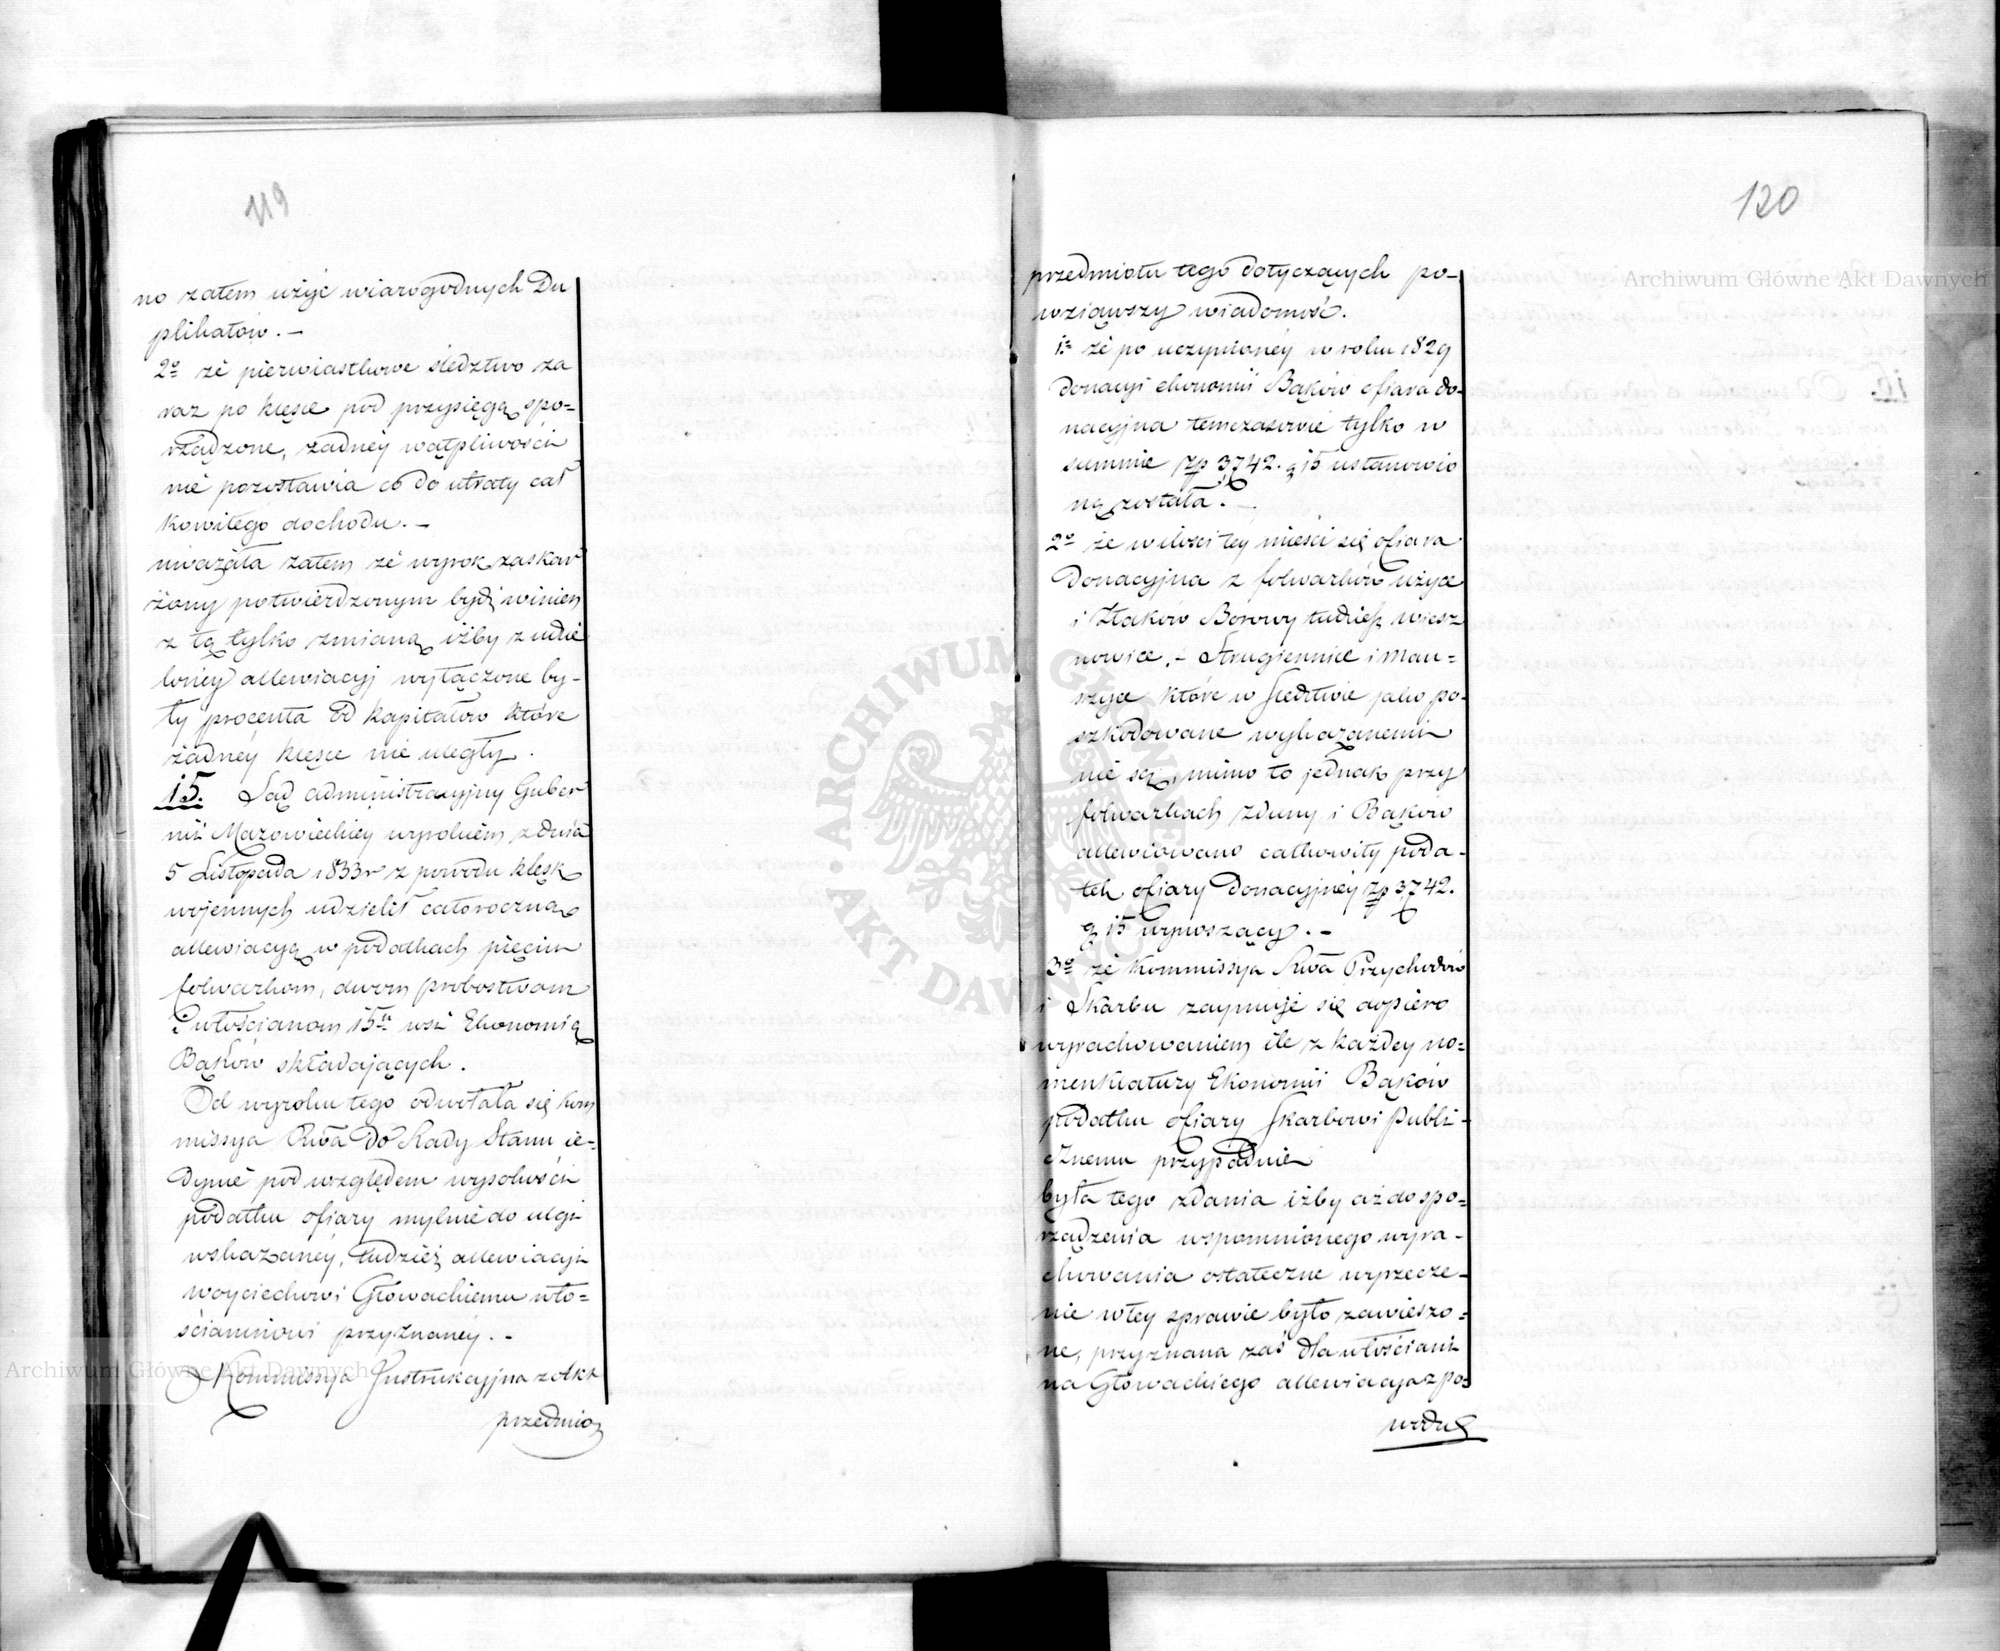 119
no zatem użyć wiarogodnych Du
plikatów. –
2o że pierwiastkowe śledztwo za
raz po klęsce pod przysięgą spo=
rządzone, żadney wątpliwości
nie pozostawia co do utraty cał
kowitego dochodu. –
uważała zatem że wyrok zaskar
żony potwierdzonym bydź winien
z tą tylko zmianą iżby z udzie
loney allewiacyj wyłączone by-
ły procenta od kapitałów które
żadney klęsce nie uległy.
15. Sąd administracyjny Guber
nii Mazowieckiey wyrokiem z dnia
5 Listopada 1833r z powodu klęsk
wojennych udzielił całoroczną
allewiacyą w podatkach pięciu
folwarkom, dwom probostwom
i włościanom 15tu wsi Ekonomią
Bąków składających.
Od wyroku tego odwołała się Kom
missya Rwa do Rady Stanu ie=
dynie pod względem wysokości
podatku ofiary mylnie do ulgi
wskazaney, tudzież allewiacyi
woyciechowi Głowackiemu wło=
ścianinowi przyznaney. –
Kommissya Instrukcyjna z Akt
przedmio
120
przedmiotu tego dotyczących po-
wziąwszy wiadomość.
1o że po uczynioney w roku 1829
donacyi ekonomii Bąków ofiara do-
nacyjna temczasowie tylko w
summie zp 3742. g 15 ustanowio
ną została. –
2o że w ilości tey mieści się ofiara
Donacyjna z folwarków użyce
i Złaków Borowy tudzież wiesz
nowice, – Strugiennice i Mau=
szyce które w śledztwie jako po-
szkodowane wykazanemi
nie są, mimo to jednak przy
folwarkach Zduny i Bąków
allewiowano całkowity poda-
tek ofiary Donacyjney zp 3742.
g 15 wynoszący. –
3o że Kommissya Rwa Przychodów
i Skarbu zaymuje się dopiero
wyrachowaniem ile z każdey no=
menklatury Ekonomii Bąków
podatku ofiary Skarbowi Publi-
cznemu przypadnie
była tego zdania iżby aż do spo=
rządzenia wspomnionego wyra-
chowania ostateczne wyrzecze-
nie w tey sprawie było zawieszo=
ne, przyznana zaś dla włościani
na Głowackiego allewiacya z po=
wodu
Archiwum Główne Akt Dawnych
Archiwum Główne Akt Dawnych
ARCHIWUM GŁÓWNE AKT DAWNYCH